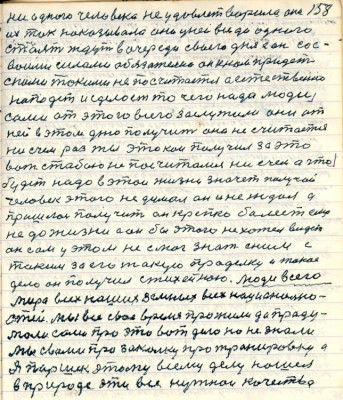 ни одного человека не удовлетворила она 158
их так наказывала они у ней видa одного
стоят ждут в очереди своего дня он сос
воими силами обязательно окном придет
сними такими не посчитается а естественно
нападет и сделост то чего надо люди
сами от этого всего заслужили они от
ней в этом дно получит она не считается
ни с чем раз ты это как получил за это
вот с тобою не посчитался ни с чем а это
будет надо в этой жизни значет получай
человек этого не думал он и не ждал а
пришлось получит он крепко болеет ему
не до жизни а он бы этого не хотел видеть
он сам у этом не смог знат сним с
таким за его такую проделку и такое
дело он получил стихейною. Люди всего
мира всех наших земных всех национально-
стей. мы все свое время прожили да приду-
мали сами про это вот дело но не знали
мы с вами про закалку про тренировку а
я Паршек этому всему делу нашел
в природе эти все нужной качества